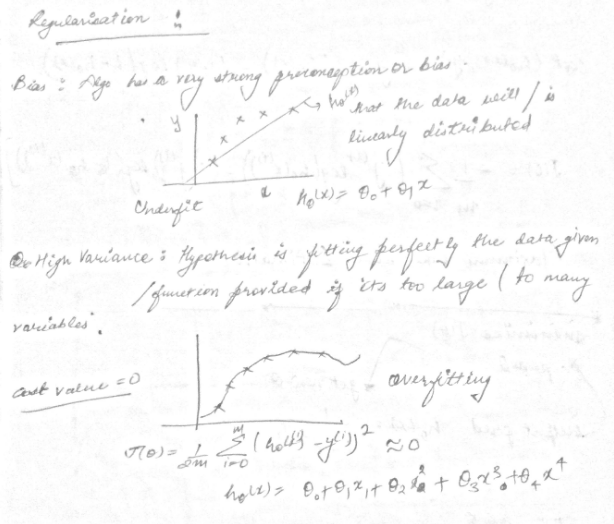 Regularization :
Bias : Algo has a very strong preconception or bias.
hθ(x) that the data will / is
y
linearly distributed
x hθ(x) = θ₀ + θ₁x
Underfit
High Variance : Hypothesis is fitting perfectly the data given
/ function provided if its too large ( to many
variables.
Cost value = 0
overfitting
J(θ) = 1/2m Σ_{i=0}^{m} (hθ(x^{(i)}) - y^{(i)})² ≈ 0
hθ(x) = θ₀ + θ₁x₁ + θ₂x² + θ₃x³ + θ₄x⁴